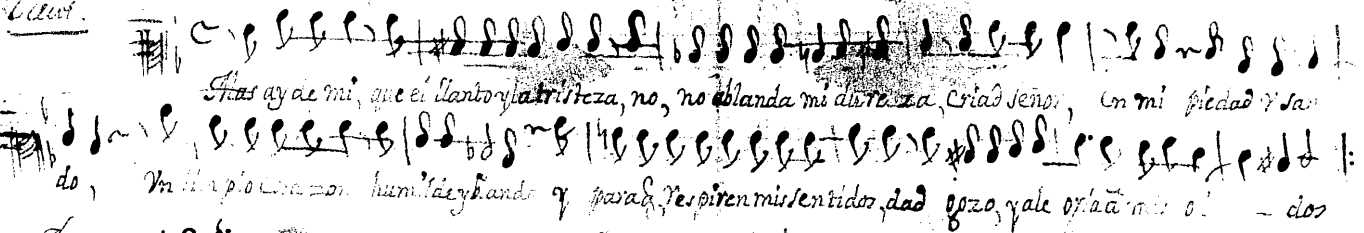 Mas ay de mi, que el llanto y la tristeza, no, no ablanda mi dureza, criad señor, en mi piedad y san
do, Vn limpio corazon humilde y blando y para q̃ respiren mis sentidos, dad gozo, y alegria a mis oi - dos